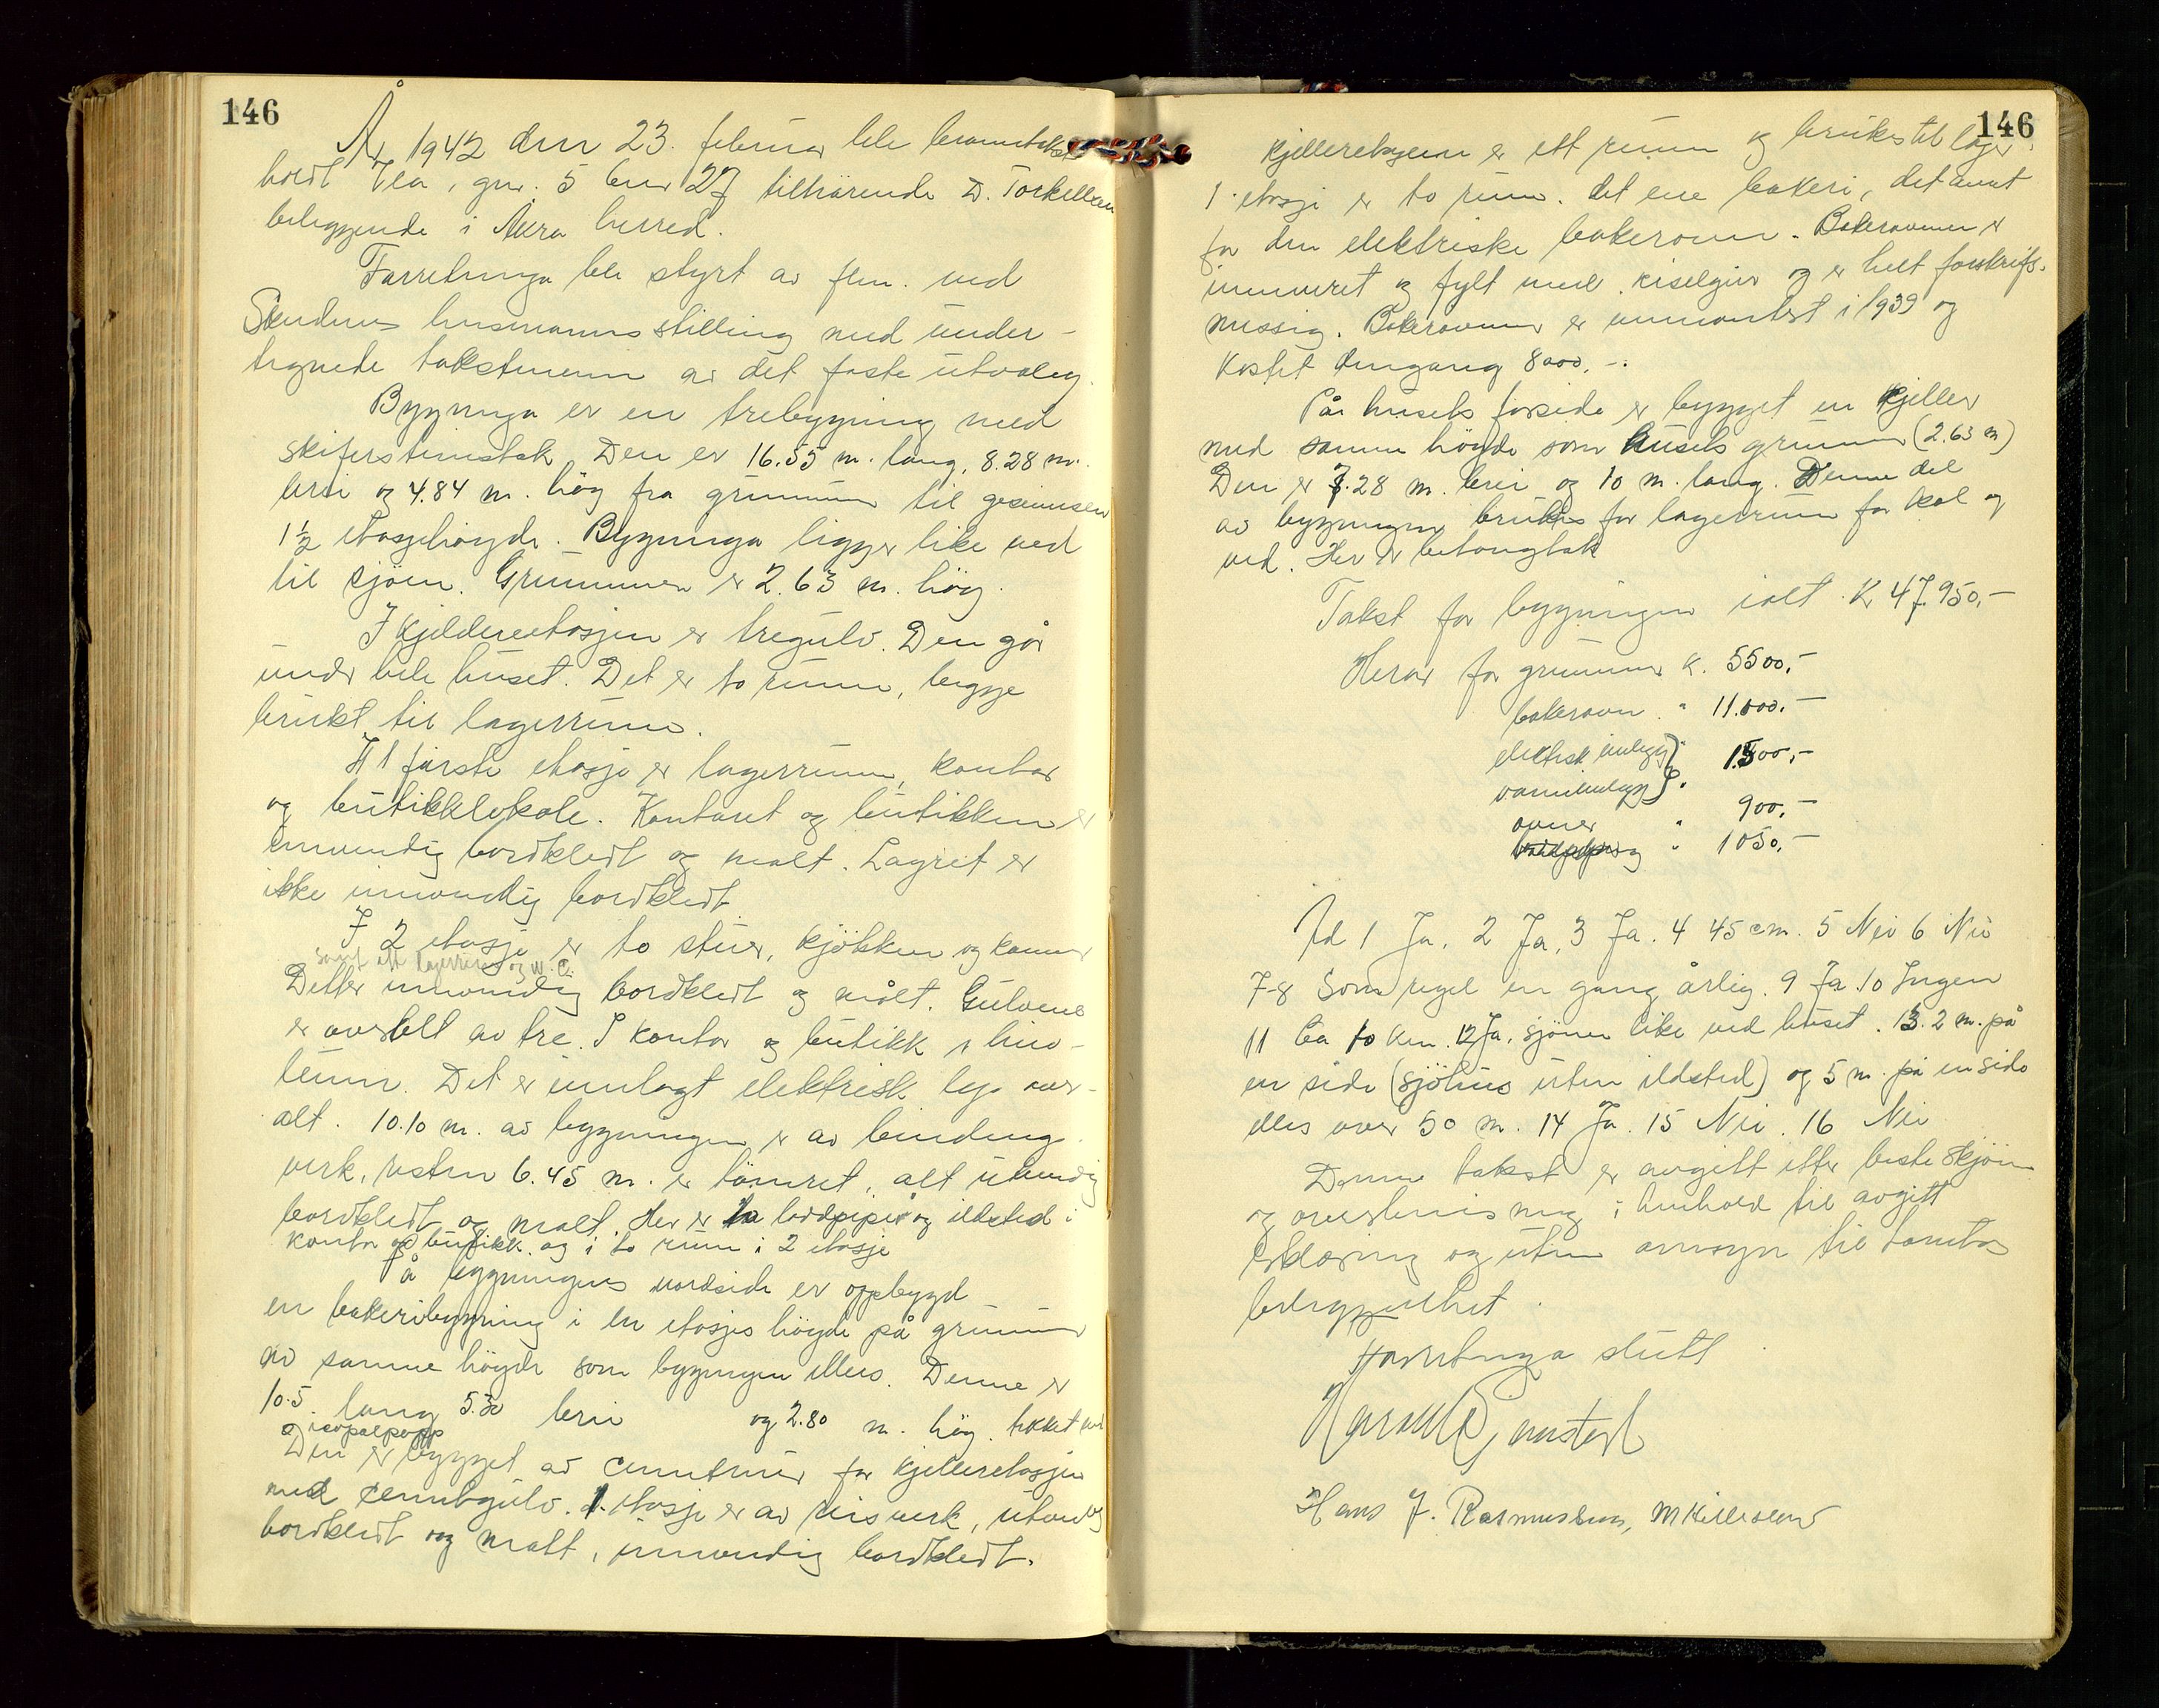 146
År 1942 den 23. februar ble branntakst
holdt Vea, gnr. 5 bnr 27 tilhörende D. Torkellsen
beliggende i Åkra herred.
Forretninga ble styrt av flm. ved
Skudenes lensmannsstilling med under-
tegnede takstmenn av det faste utvalg.
Bygninga er en trebygning med
skiferstinstak. Den er 16.55 m. lang, 8.28 m.
brei og 4.84 m. hög fra grunnmur til gesimsen
1½ etasjehöyde. Bygninga ligger like ved
til sjöen. Grunnmuren er 2.63 m. hög.
I kjelderetasjen er tregulv. Den går
under hele huset. Det er to rumm, begge
brukt til lagerrumm.
I 1 förste etasje er lagerrumm, kontor
og butikklokale. Kontoret og butikken er
innvendig bordkledt og malt. Lagret er
ikke innvendig bordkledt
I 2 etasje er to stuer, kjökken og kammer
samt ett lagerrum og W.C.
Detter innvendig bordkledt og målt. Gulvene
er overalt av tre. I kontor og butikk er lino-
leum. Det er innlagt elektrisk lys over-
alt. 10.10 m. av bygningen er av binding
verk, resten 6.45 m. er tömret, alt utvendig
bordkledt og malt. Her er to loddpiper og ildsted i
kontor og butikk og i to rum i 2 etasje
På bygningens nordside er oppbygd
en bakeribygning i en etasjes höyde på grunnmur
av samme höyde som bygningen ellers. Denne er
10.5 lang 5.30 brei og 2.80 m. hög. tekket med
icopalpapp
Den er bygget av cementmur for kjelleretasjen
med cementgulv. 1. etasje er av reisverk, utvendig
bordkledt og malt, innvendig bordkledt.
146
kjelleretasjen er ett rumm og brukes til lager.
1. etasje er to rumm. det ene bakeri, det annet
for den elektriske bakerovn. Bakerovnen er
innmuret og fylt med kiselgur og er helt forskrifs-
messig. Bakerovnen er innmontert i 1939 og
kostet dengang 8000,-.
På husets forside er bygget en kjeller
med samme höyde som husets grunnmur (2.63 m)
Den er 7.28 m. brei og 10 m. lang. Denne del
av bygningen brukes for lagerrum for kol og
ved. Her er betongtak
Takst for bygningen ialt K 47.950,-
Herav for grunnmur K. 5500,-
bakerovn " 11.000,-
elektrisk innlegg } " 1500,-
vanninnlegg } "
ovner " 900,-
" 1050,-
Ad 1 Ja, 2 Ja, 3 Ja. 4 45 cm. 5 Nei 6 Nei
7-8 Som regel en gang årlig. 9 Ja 10 Ingen
11 Ca 10 km. 12 Ja, sjöen like ved huset. 13. 2 m. på
en side (sjöhus uten ildsted) og 5 m. på en side
elles over 50 m. 14 Ja. 15 Nei. 16 Nei
Denne takst er avgitt etter beste skjön
og overbevisning i henhold til avgitt
erklæring og uten omsyn til tomtas
beliggenhet.
Forretninga slutt
Hans J. Rasmussen, M Killesen